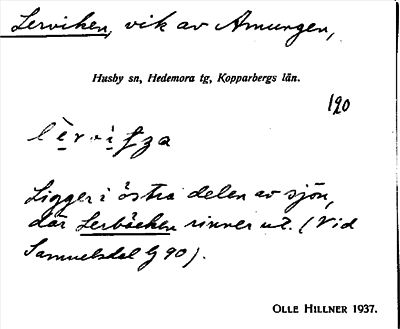 Lerviken, vik av Amungen,
Husby sn, Hedemora tg, Kopparbergs län.
120
Ligger i östra delen av sjön,
där Lerbäcken rinner ut. (Vid
Samuelsdal G 90).
OLLE HILLNER 1937.